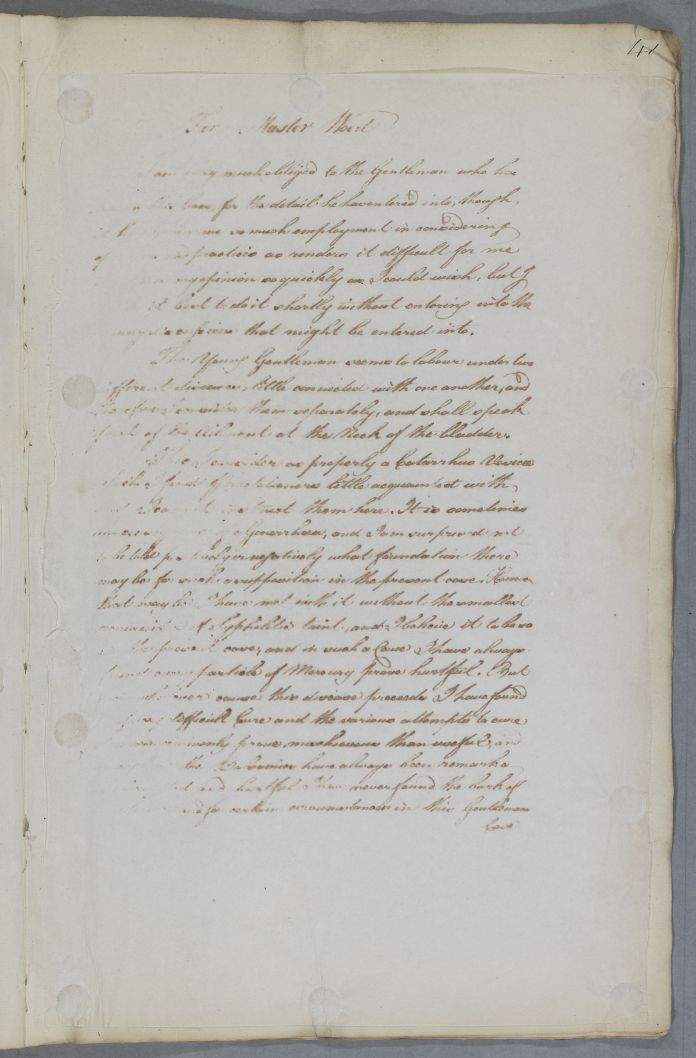 41
For Master Wood
I am very much obliged to the Gentleman who has
for the detail he has entered into, though,
it me so much employment in considering
of and practice as renders it difficult for me
my opinion so quickly as I could wish, but I
it best to do it shortly without entering into the
many discussions that might be entered into.
The Young Gentleman seems to labour under two
different diseases, little connected with one another, and
therefore I consider them separately, and shall speak
first of the Ailment at the Neck of the bladder.
This I consider as properly a Catarrhus Vesicæ
which I find Practitioners little acquainted with
and I cannot treat them here. It is sometimes
a Gonorrhœa, and I am surprised not
to be told positively or negatively what foundation there
may be for such a supposition in the present case. However
that may be I have met with it without the smallest
of Syphilitic taint, and I believe it to be so
in the present case, and in such a Case I have always
found every particle of Mercury prove hurtful. But
from whatever cause this disease proceeds I have found
difficult Cure and the various attempts to cure
commonly prove mischievous than useful, and
the Balsamics have always been remarka
and hurtful I have never found the bark of
and for certain circumstances in this Gentlemans
Case